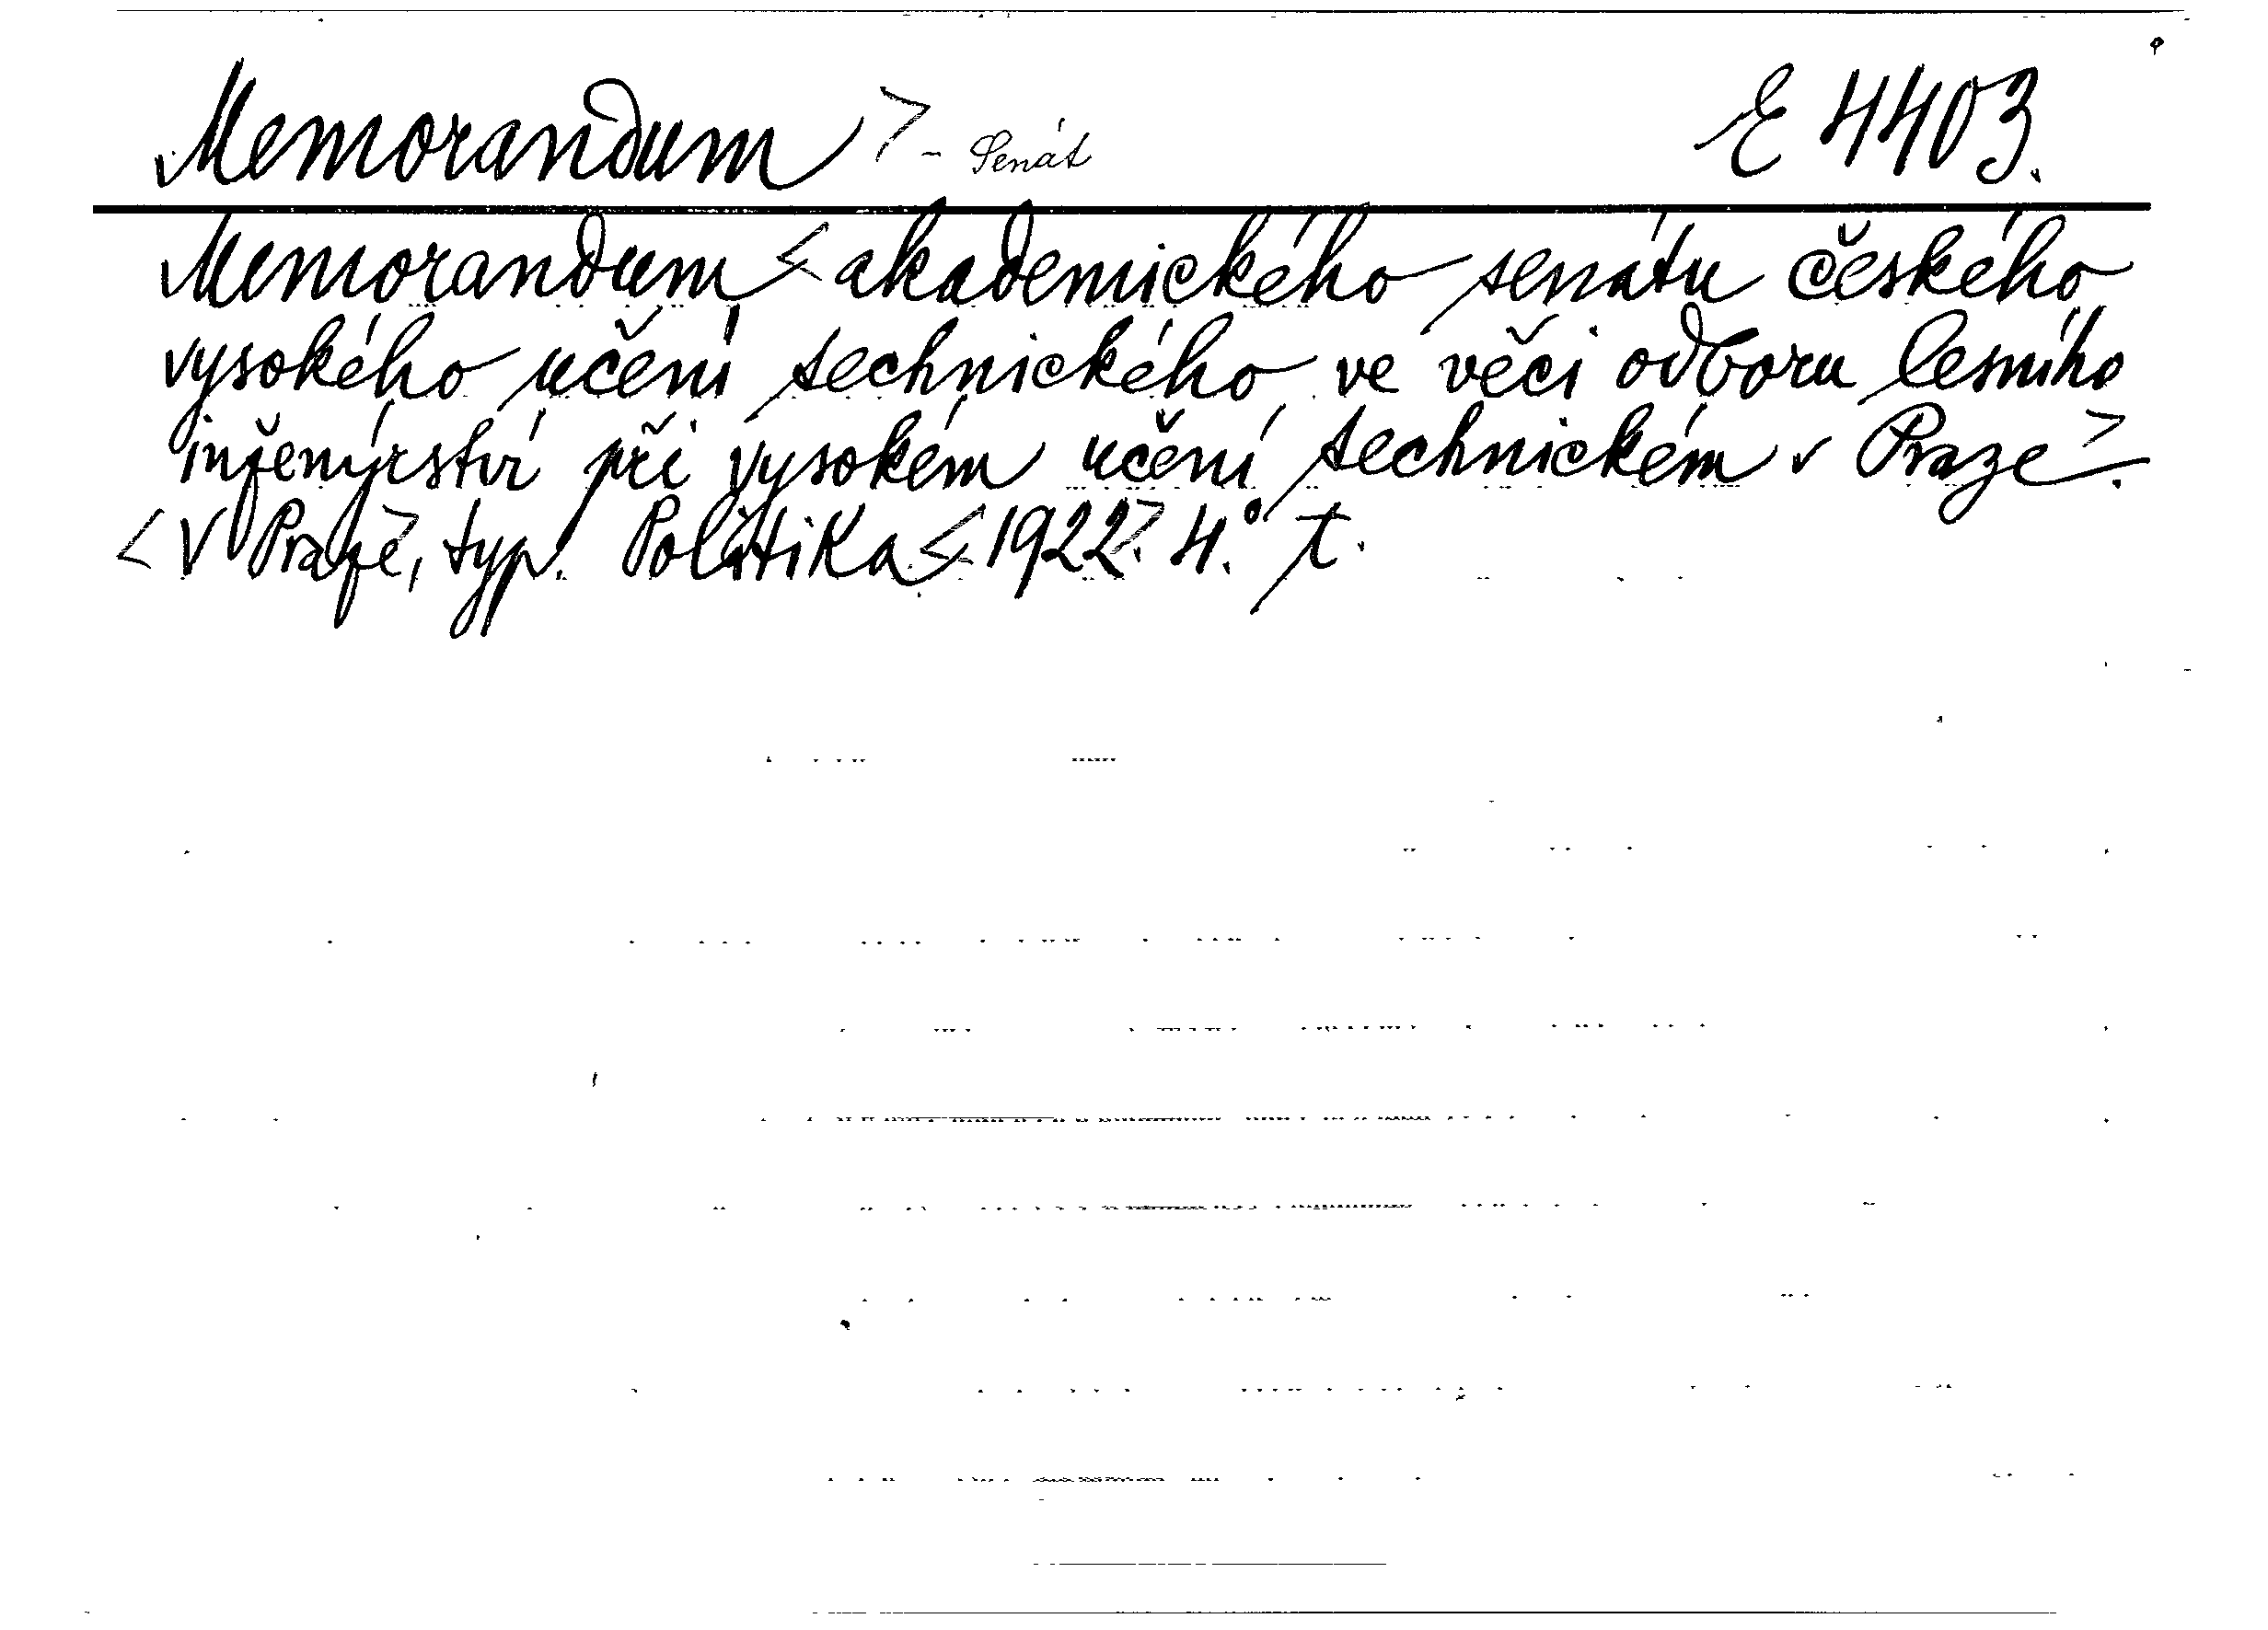 Memorandum > - Senát E 4403.
Memorandum < akademického senátu českého
vysokého učení technického ve věci odboru lesního
inženýrství při vysokém učení technickém v Praze >.
< V Praze >, typ. Politika < 1922 >. 4.° t.